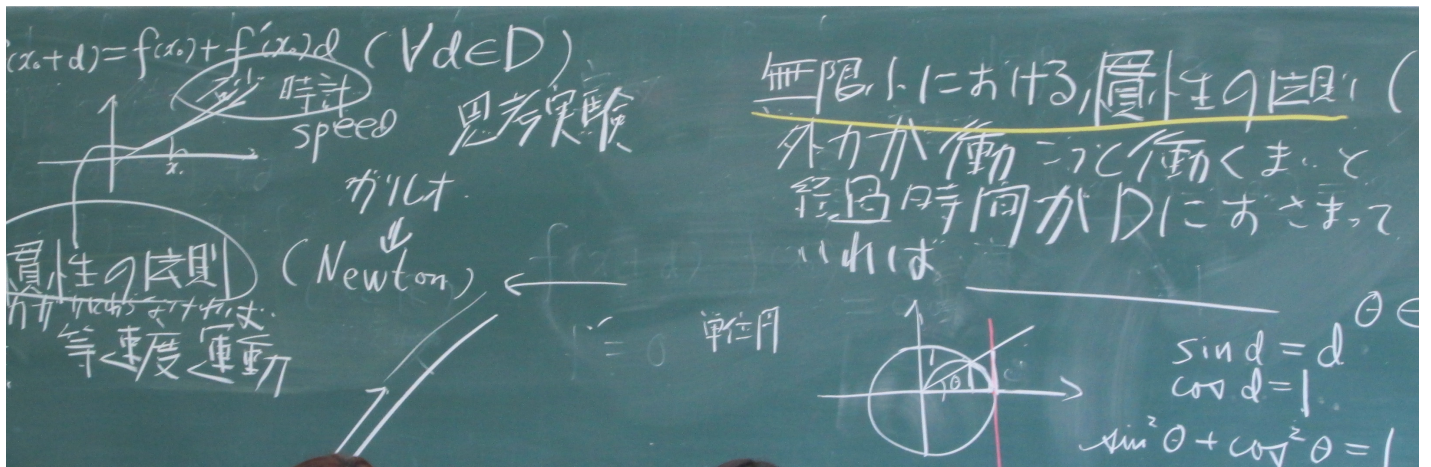 (x₀+d)=f(x₀)+f'(x₀)d (∀d∈D)
秒時計
speed
思考実験
x₀
ガリレオ
⇓
慣性の法則 (Newton) ←
等速度運動
単位円
無限小における慣性の法則 (
外力が働こうと働くまいと
経過時間がDにおさまって
いれば
θ
θ∈
sin d = d
cos d = 1
sin²θ + cos²θ = 1